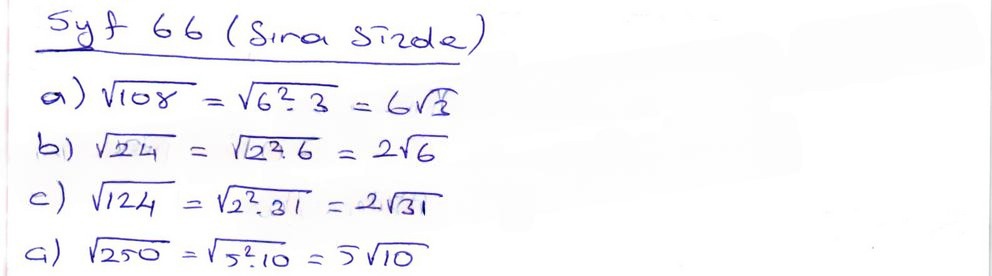 Syf 66 (Sıra Sizde)
a) √108 = √6².3 = 6√3
b) √24 = √2².6 = 2√6
c) √124 = √2².31 = 2√31
ç) √250 = √5².10 = 5√10